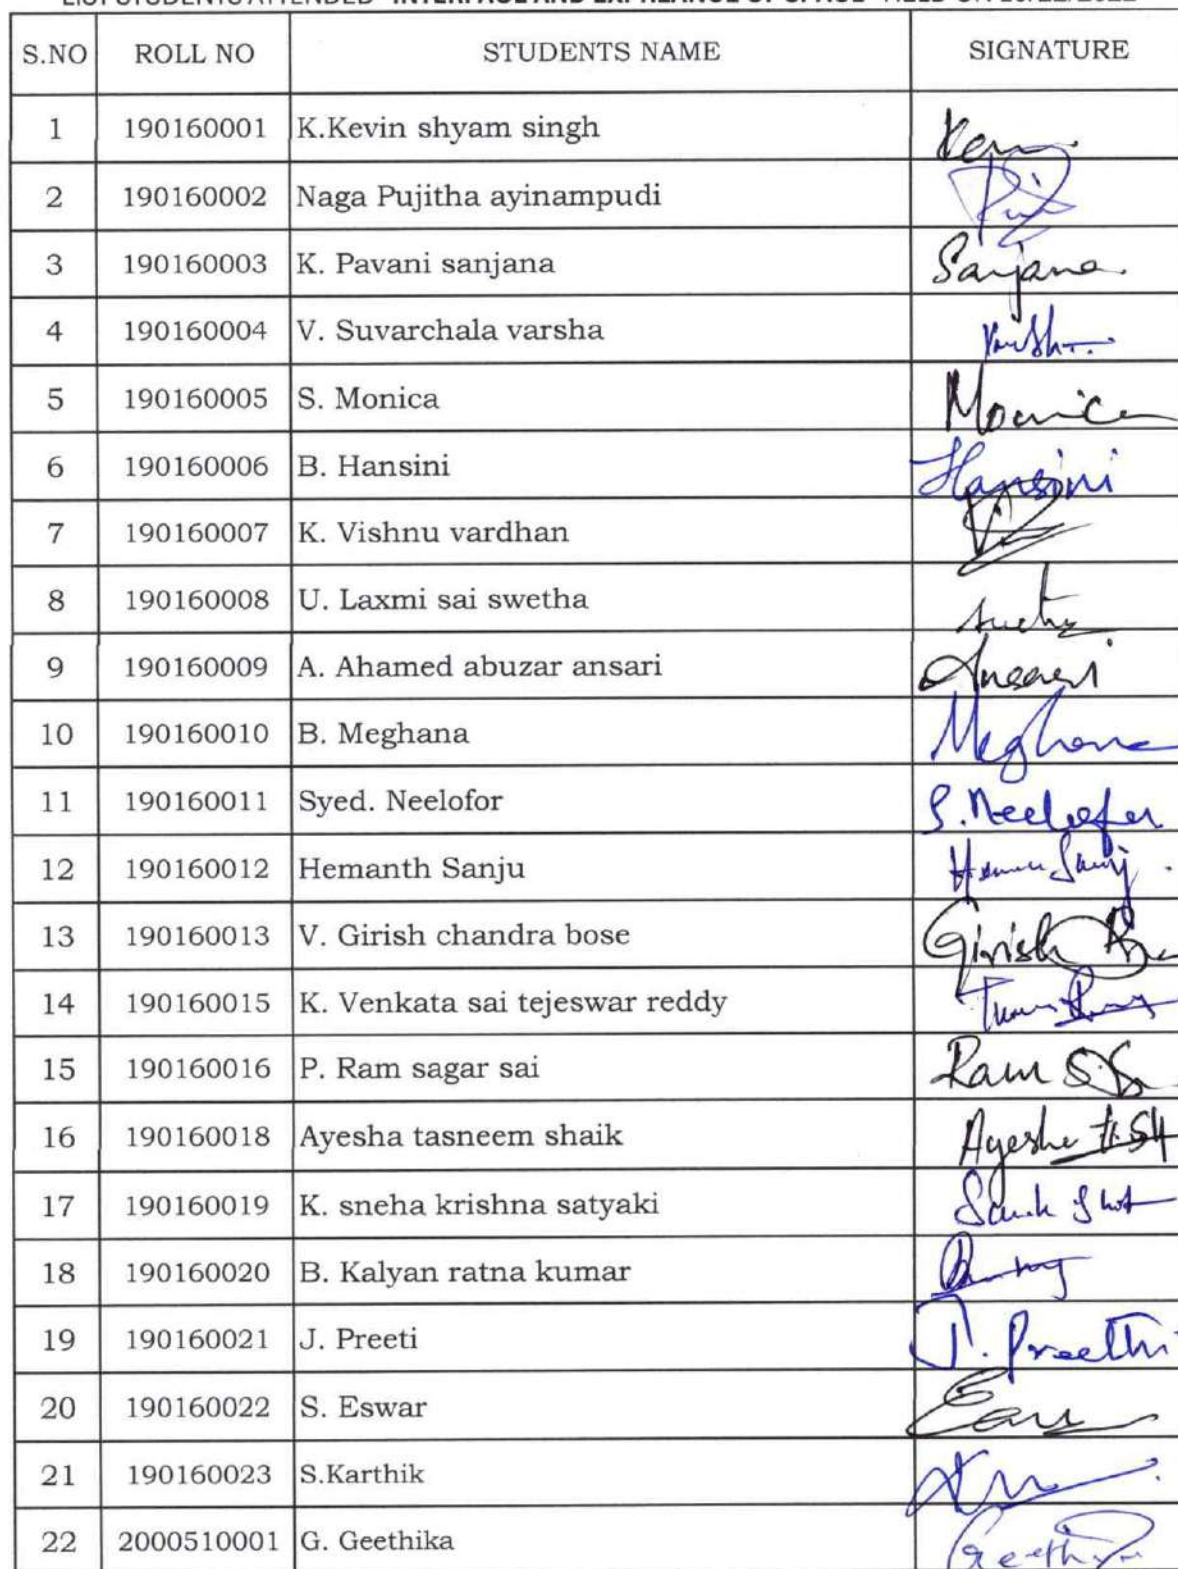 S.NO ROLL NO STUDENTS NAME SIGNATURE
1 190160001 K.Kevin shyam singh
2 190160002 Naga Pujitha ayinampudi
3 190160003 K. Pavani sanjana Sanjana
4 190160004 V. Suvarchala varsha
5 190160005 S. Monica Mounica
6 190160006 B. Hansini Hansini
7 190160007 K. Vishnu vardhan
8 190160008 U. Laxmi sai swetha
9 190160009 A. Ahamed abuzar ansari Ansari
10 190160010 B. Meghana Meghana
11 190160011 Syed. Neelofor S. Neelofer
12 190160012 Hemanth Sanju
13 190160013 V. Girish chandra bose Girish
14 190160015 K. Venkata sai tejeswar reddy
15 190160016 P. Ram sagar sai Ram
16 190160018 Ayesha tasneem shaik Ayesha
17 190160019 K. sneha krishna satyaki
18 190160020 B. Kalyan ratna kumar
19 190160021 J. Preeti J. Preethi
20 190160022 S. Eswar
21 190160023 S.Karthik
22 2000510001 G. Geethika